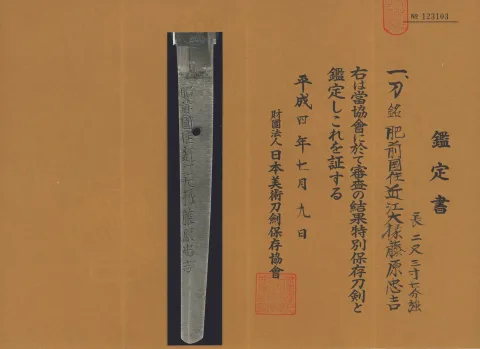 № 123103
鑑定書
一、刀 銘 肥前国住近江大掾藤原忠吉
長 二尺三寸七分強
右は當協會に於て審査の結果特別保存刀劍と
鑑定しこれを証する
平成四年七月九日
財團法人 日本美術刀劍保存協會